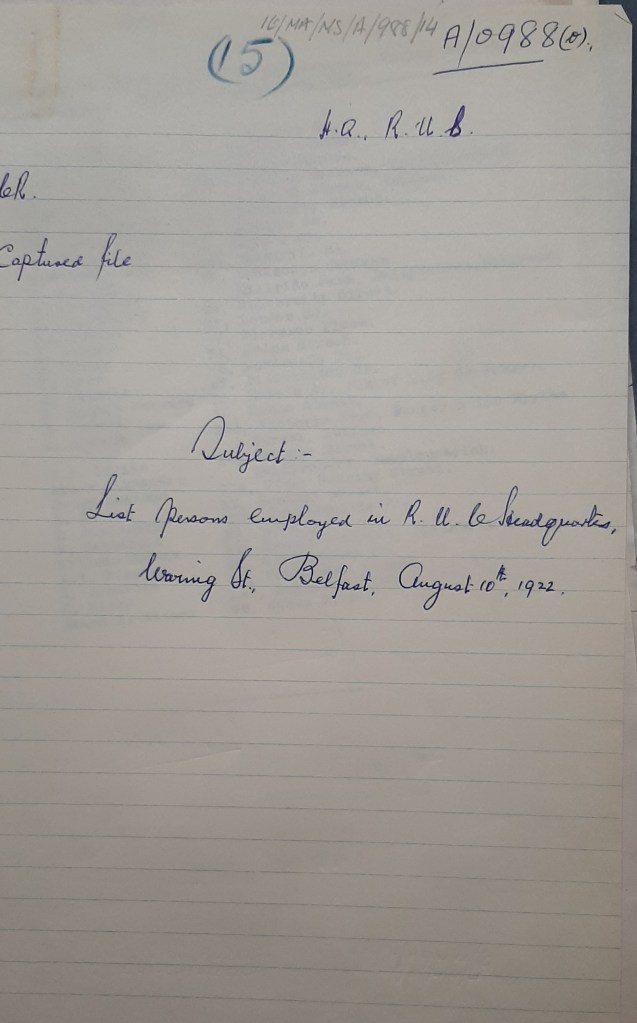 16/MA/NS/A/988/14
A/0988(15).
(15)
H.Q., R.U.C.
Captured file
Subject :-
List persons employed in R.U.C Headquarters,
Waring St., Belfast, August 10th, 1922.